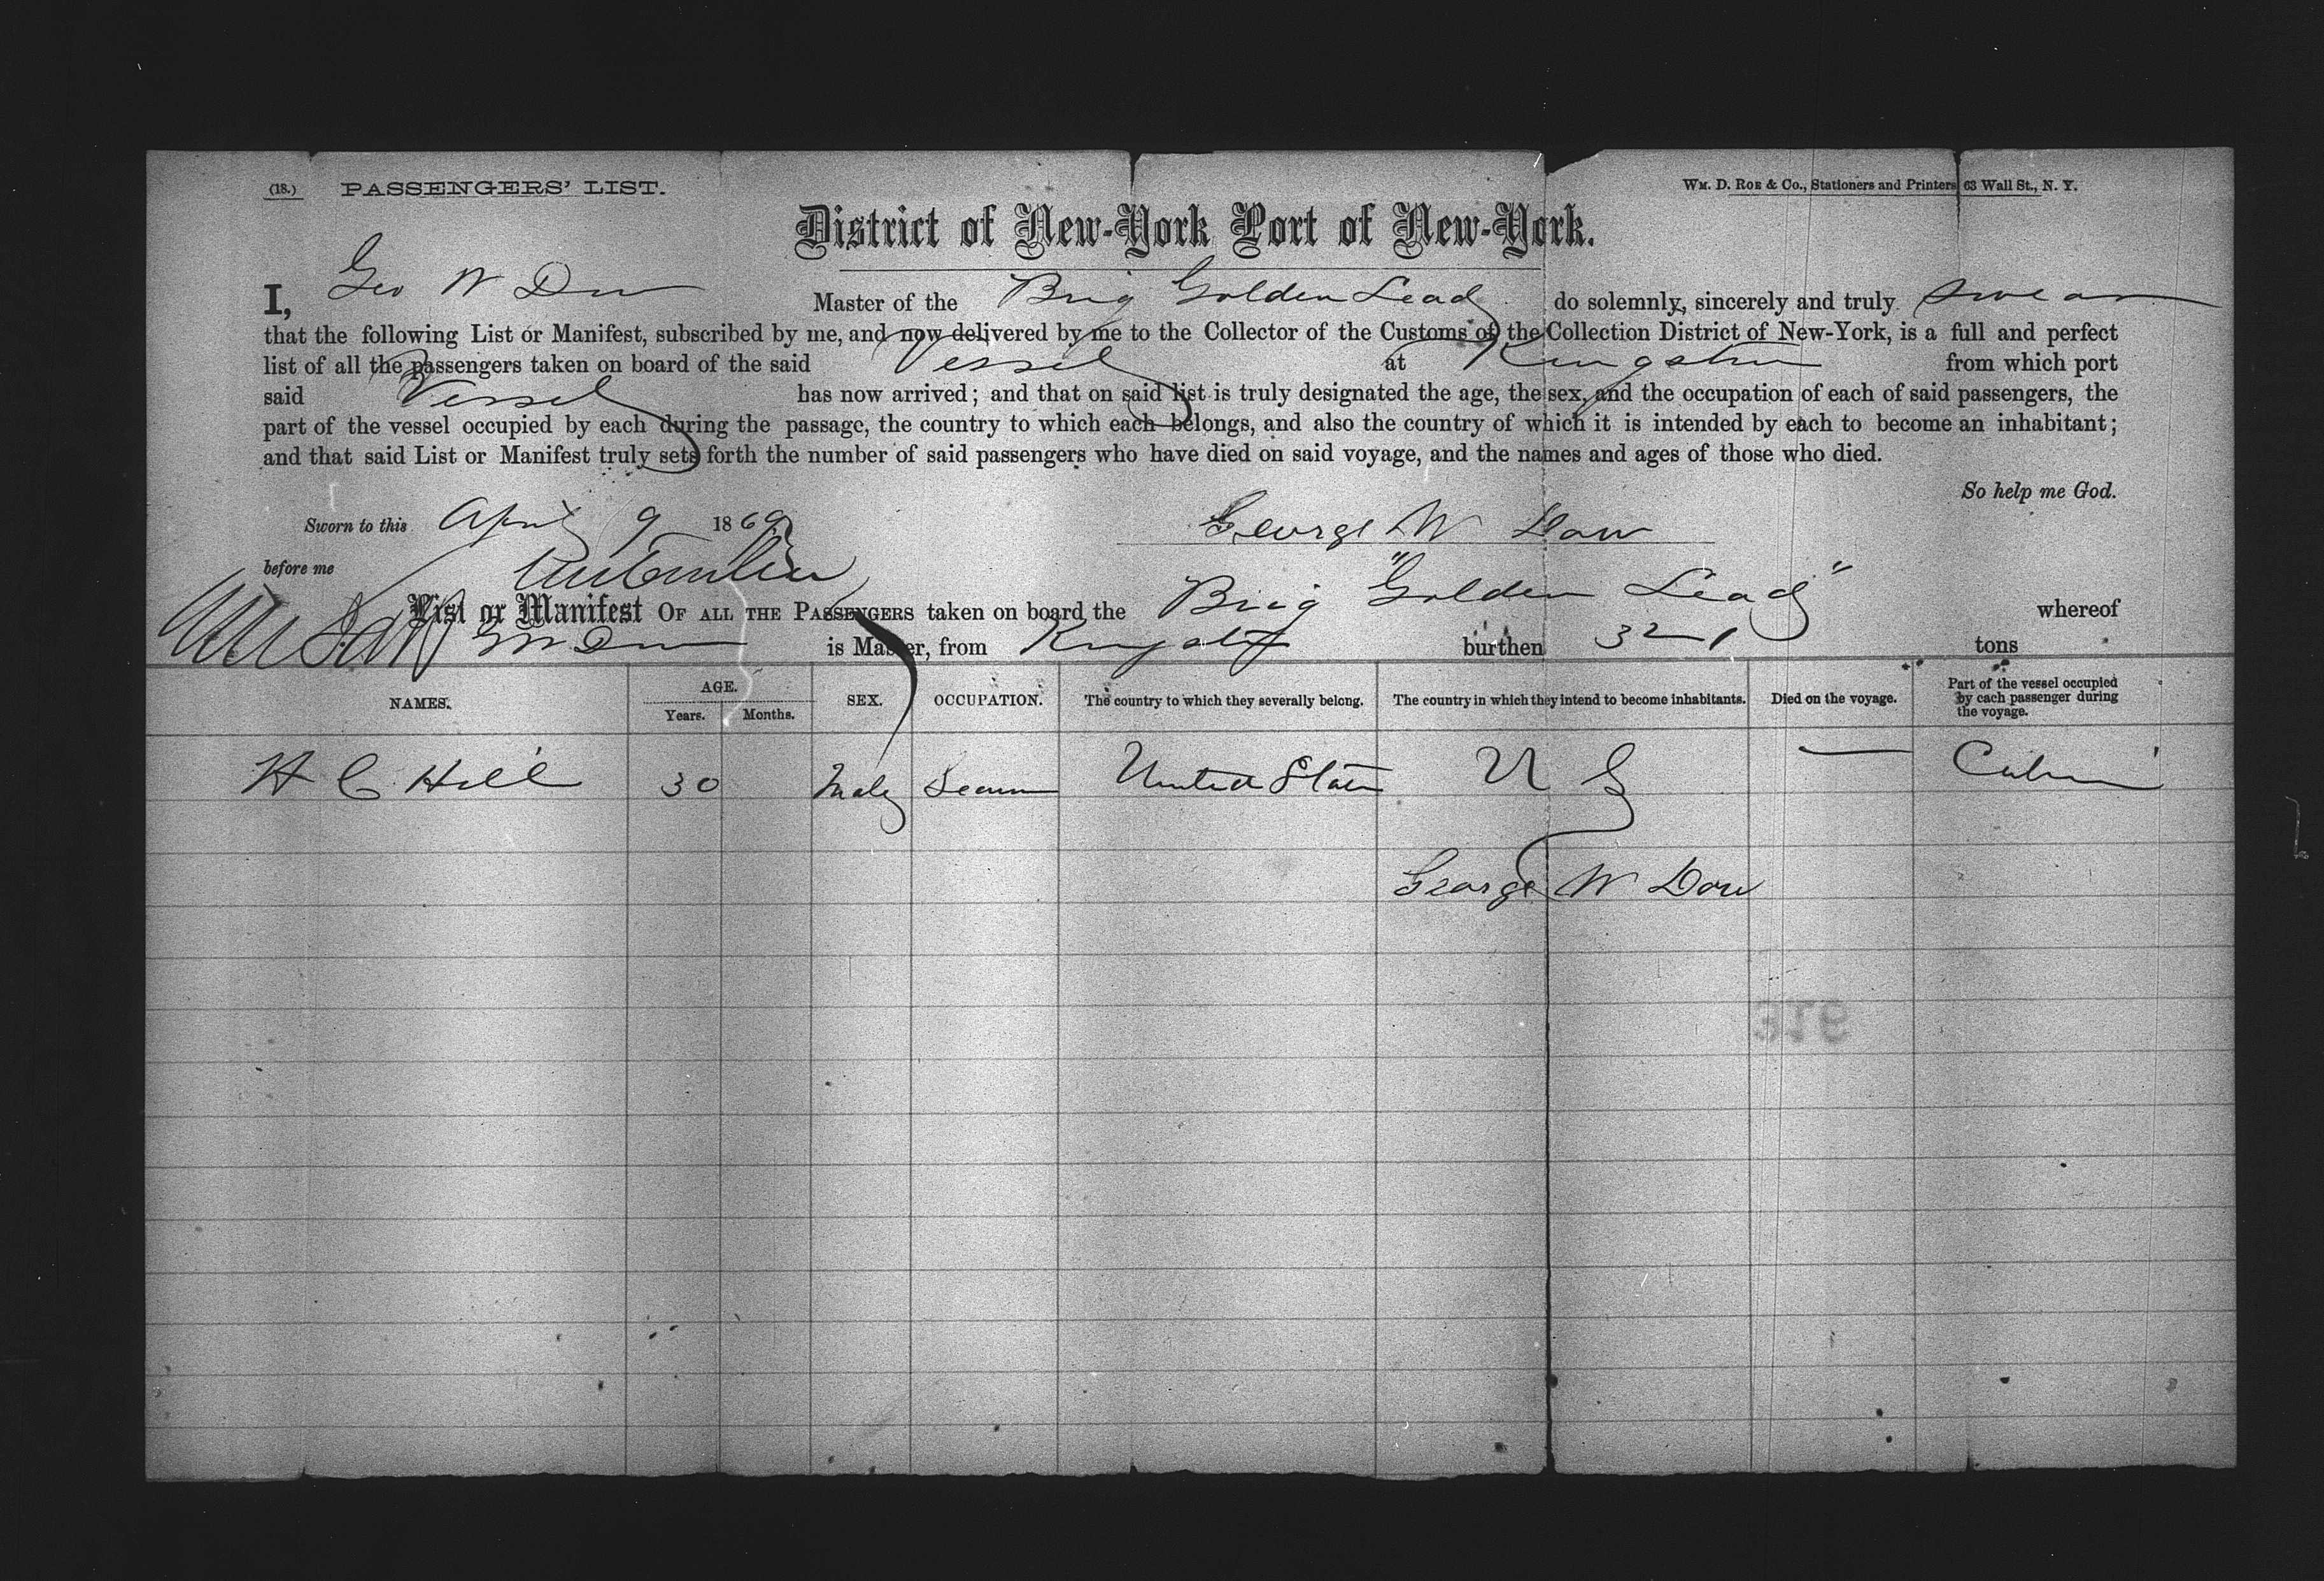 (18.) PASSENGERS' LIST.
WM. D. ROE & CO., Stationers and Printers, 63 Wall St., N. Y.
District of New-York Port of New-York.
I, Geo W Dow Master of the Brig Golden Lead do solemnly, sincerely and truly swear
that the following List or Manifest, subscribed by me, and now delivered by me to the Collector of the Customs of the Collection District of New-York, is a full and perfect
list of all the passengers taken on board of the said Vessel at Kingston from which port
said Vessel has now arrived; and that on said list is truly designated the age, the sex, and the occupation of each of said passengers, the
part of the vessel occupied by each during the passage, the country to which each belongs, and also the country of which it is intended by each to become an inhabitant;
and that said List or Manifest truly sets forth the number of said passengers who have died on said voyage, and the names and ages of those who died.
So help me God.
Sworn to this April 9 1869
George W Dow
before me
List or Manifest OF ALL THE PASSENGERS taken on board the Brig "Golden Lead" whereof
G W Dow is Master, from Kingston burthen 321 tons
NAMES. AGE. SEX. OCCUPATION. The country to which they severally belong. The country in which they intend to become inhabitants. Died on the voyage. Part of the vessel occupied by each passenger during the voyage.
Years. Months.
H C Hill 30 Male Seaman United States U S — Cabin
George W Dow
316